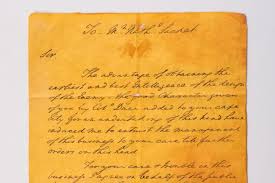 To Mr Nathl Sackett
Sir
The advantage of obtaining the
earliest and best Intelligence of the designs
of the Enemy, the good Character given
of you by Colo Duer added to your capa
city for an undertaking of this kind have
induced me to entrust the management
of this business to your care till further
orders on this head
For your care & trouble in this
business I agree on behalf of the public